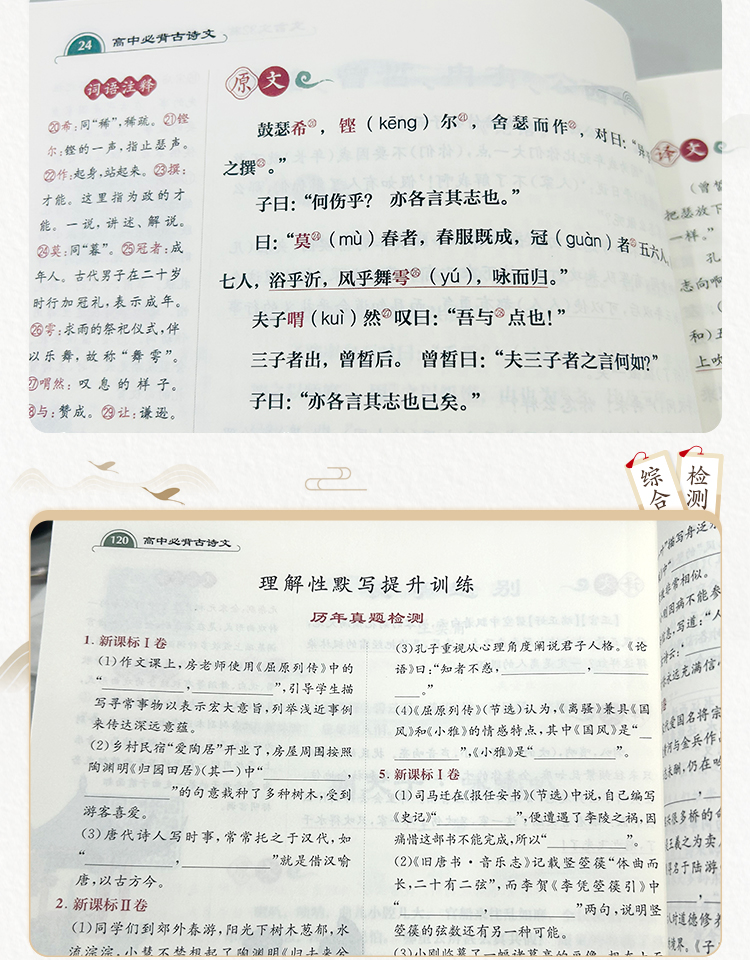 24 高中必背古诗文
词语注释
⑳希：同“稀”，稀疏。㉑铿
尔：铿的一声，指止瑟声。
㉒作：起身，站起来。㉓撰：
才能。这里指为政的才
能。一说，讲述、解说。
㉔莫：同“暮”。㉕冠者：成
年人。古代男子在二十岁
时行加冠礼，表示成年。
㉖雩：求雨的祭祀仪式，伴
以乐舞，故称“舞雩”。
㉗喟然：叹息的样子。
㉘与：赞成。㉙让：谦逊。
原文
鼓瑟希⑳，铿（kēng）尔㉑，舍瑟而作㉒，对曰：“异
之撰㉓。”
子曰：“何伤乎？亦各言其志也。”
曰：“莫㉔（mù）春者，春服既成，冠（guàn）者㉕五六人，
七人，浴乎沂，风乎舞雩㉖（yú），咏而归。”
夫子喟（kuì）然㉗叹曰：“吾与㉘点也！”
三子者出，曾皙后。曾皙曰：“夫三子者之言何如？”
子曰：“亦各言其志也已矣。”
译文
（曾皙
把瑟放下
一样。”
孔
志向啊
（
和）五
上吹
综合
检测
120 高中必背古诗文
理解性默写提升训练
历年真题检测
1. 新课标Ⅰ卷
（1）作文课上，房老师使用《屈原列传》中的
“________，________”，引导学生描
写寻常事物以表示宏大意旨，列举浅近事例
来传达深远意蕴。
（2）乡村民宿“爱陶居”开业了，房屋周围按照
陶渊明《归园田居》（其一）中“________，
________”的句意栽种了多种树木，受到
游客喜爱。
（3）唐代诗人写时事，常常托之于汉代，如
“________，________”就是借汉喻
唐，以古方今。
2. 新课标Ⅱ卷
（1）同学们到郊外春游，阳光下树木葱郁，水
流淙淙，小慧不禁想起了陶渊明《归去来兮
（3）孔子重视从心理角度阐说君子人格。《论
语》曰：“知者不惑，________，________
____。”
（4）《屈原列传》（节选）认为，《离骚》兼具《国
风》和《小雅》的情感特点，其中《国风》是“__
________”，《小雅》是“________”。
5. 新课标Ⅰ卷
（1）司马迁在《报任安书》（节选）中说，自己编写
《史记》“________”，便遭遇了李陵之祸，因
痛惜这部书不能完成，所以“________”。
（2）《旧唐书·音乐志》记载竖箜篌“体曲而
长，二十有二弦”，而李贺《李凭箜篌引》中
“________________”两句，说明竖
箜篌的弦数还有另一种可能。
”描写舟泛
非常相似。
因病不能参
写道：“人
永远充满信
爱国名将宗
与金兵作
仍在
很多桥的
义之为卖
得名于陆游
时道德修
境界。《子